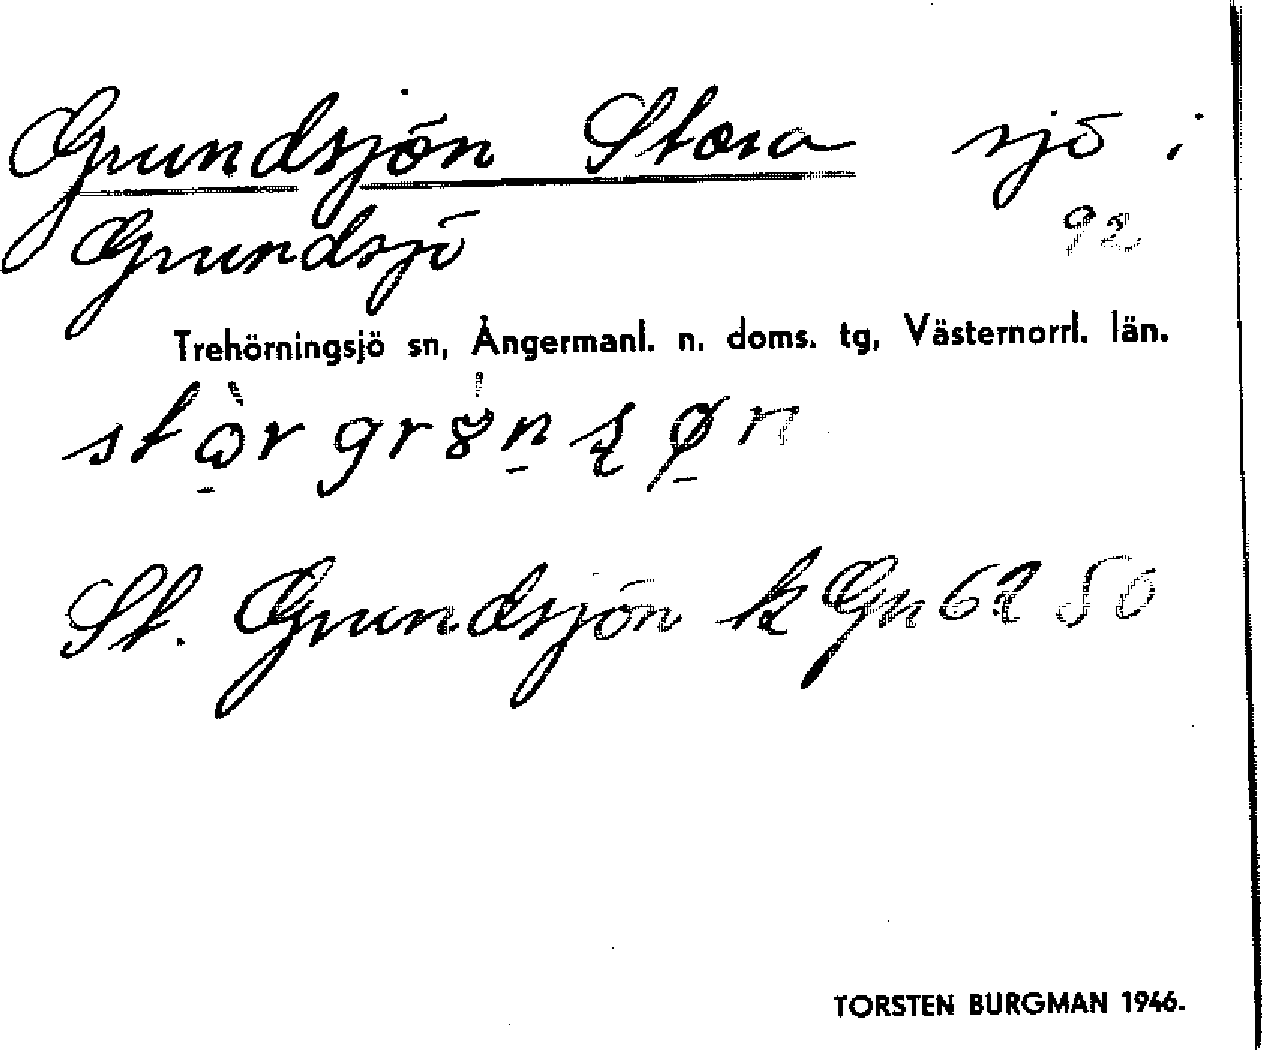 Grundsjön Stora sjö i
Grundsjö 92
Trehörningsjö sn, Ångermanl. n. doms. tg, Västernorrl. län.
St. Grundsjön k Gn 62 50
TORSTEN BURGMAN 1946.